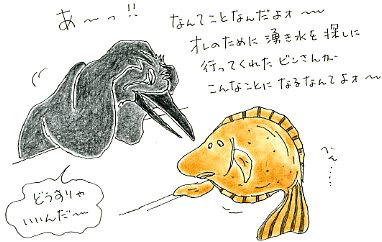 あ〜っ!!
なんてことなんだよォ〜
オレのために湧き水を探しに
行ってくれたビンさんが
こんなことになるなんてよォ〜
どうすりゃ
いいんだ〜